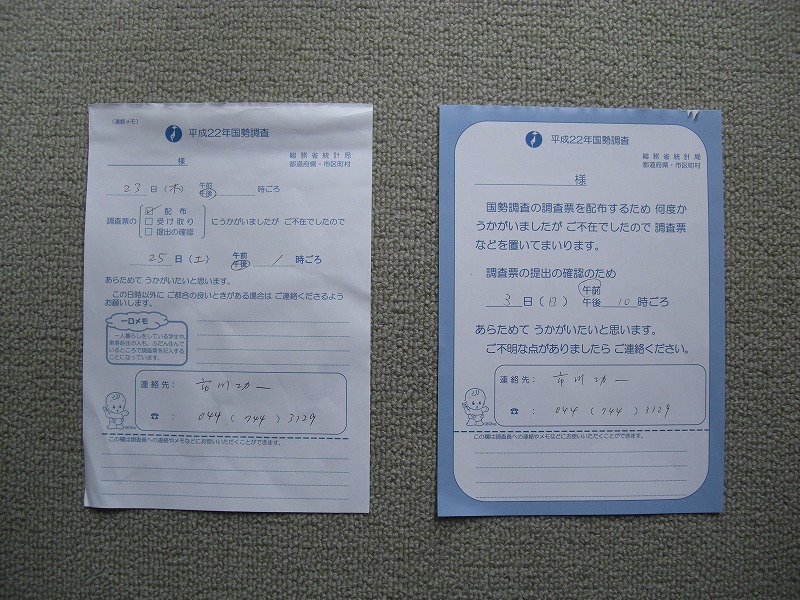 〈連絡メモ〉
平成22年国勢調査
様
総務省統計局
都道府県・市区町村
23日(木) 午前 午後 時ごろ
調査票の ☑ 配布 にうかがいましたが ご不在でしたので
□ 受け取り
□ 提出の確認
25日(土) 午前 午後 1時ごろ
あらためて うかがいたいと思います。
この日時以外に ご都合の良いときがある場合は ご連絡くださるよう
お願いします。
一口メモ
一人暮らしをしている学生や、
単身赴任の人も、ふだん住んで
いるところで調査票を記入する
ことになっています。
連絡先: 市川功一
☎ : 044 (744) 3129
この欄は調査員への連絡やメモなどにお使いいただくことができます。
平成22年国勢調査
総務省統計局
都道府県・市区町村
様
国勢調査の調査票を配布するため 何度か
うかがいましたが ご不在でしたので 調査票
などを置いてまいります。
調査票の提出の確認のため
3日(日) 午前 午後 10時ごろ
あらためて うかがいたいと思います。
ご不明な点がありましたら ご連絡ください。
連絡先: 市川功一
☎ : 044 (744) 3129
この欄は調査員への連絡やメモなどにお使いいただくことができます。